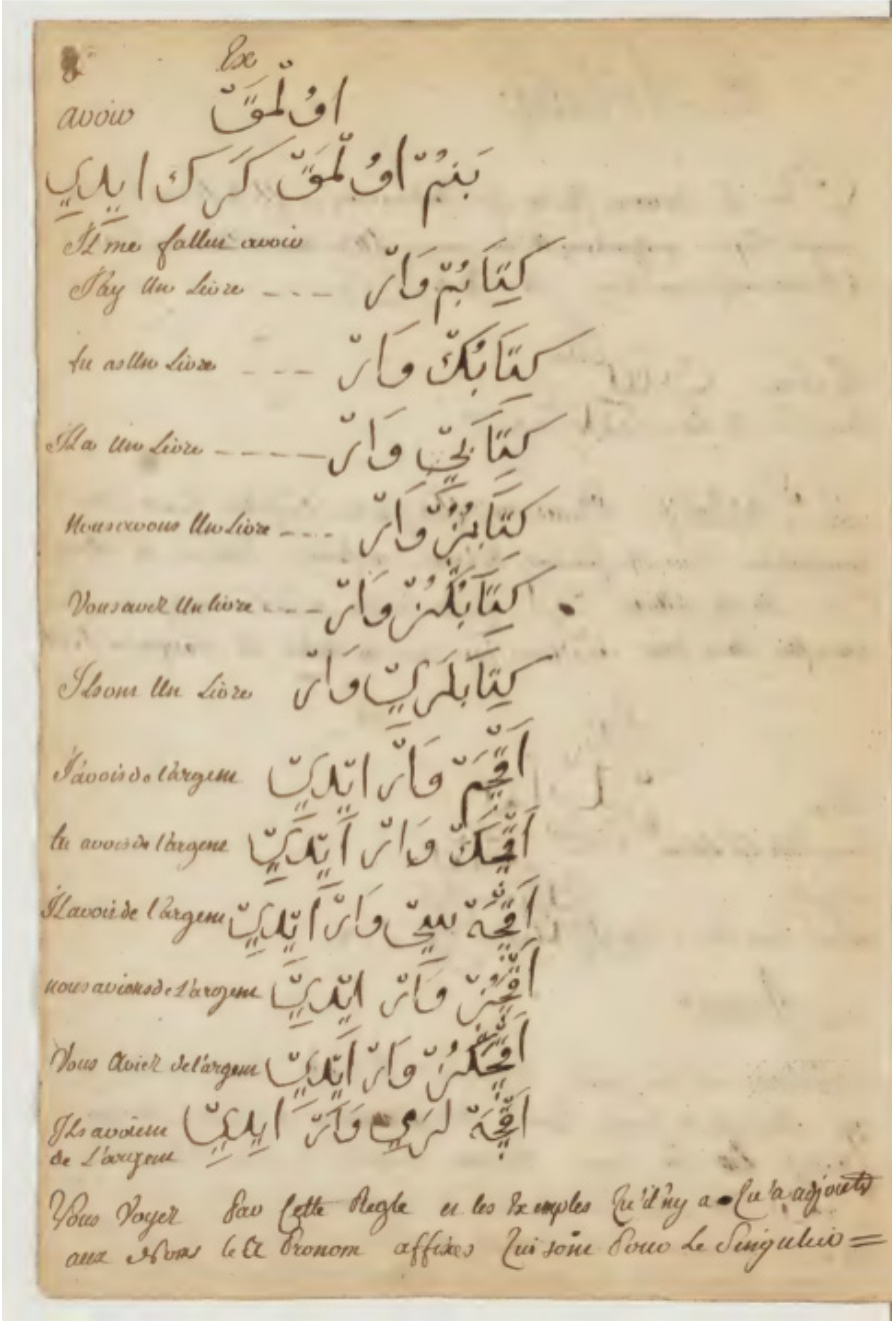 Ex
avoir اوُلْمَقْ
بَنِمْ اوُلْمَقْ كَرَكْ ايدِي
Il me fallut avoir
J'ay Un Livre --- كِتَابُمْ وَارْ
tu as Un Livre --- كِتَابُكْ وَارْ
Il a Un Livre ----- كِتَابِيْ وَارْ
nous avons Un Livre ---- كِتَابُمُزْ وَارْ
Vous avez Un livre ---- كِتَابُكُزْ وَارْ
Ils ont Un Livre كِتَابلَرِيْ وَارْ
J'avois de l'argent اَقْچَمْ وَارْ ايْدِيْ
tu avois de l'argent اَقْچَكْ وَارْ اَيْدِيْ
Il avoit de l'argent اَقْچَهْ سِيْ وَارْ اَيْدِيْ
nous avions de L'argent اَقْچَمُزْ وَارْ ايْدِيْ
Vous Aviez de l'argent اَقْچَكُزْ وَارْ اَيْدِيْ
Ils avoient de L'argent اَقْچَهْ لَرِي وَارْ اَيدِيْ
Vous Voyez Par Cette Regle et les Exemples Qu'il n'y a Qu'a adjouter
aux Pronom affixes Qui sont Pour Le Singulier =